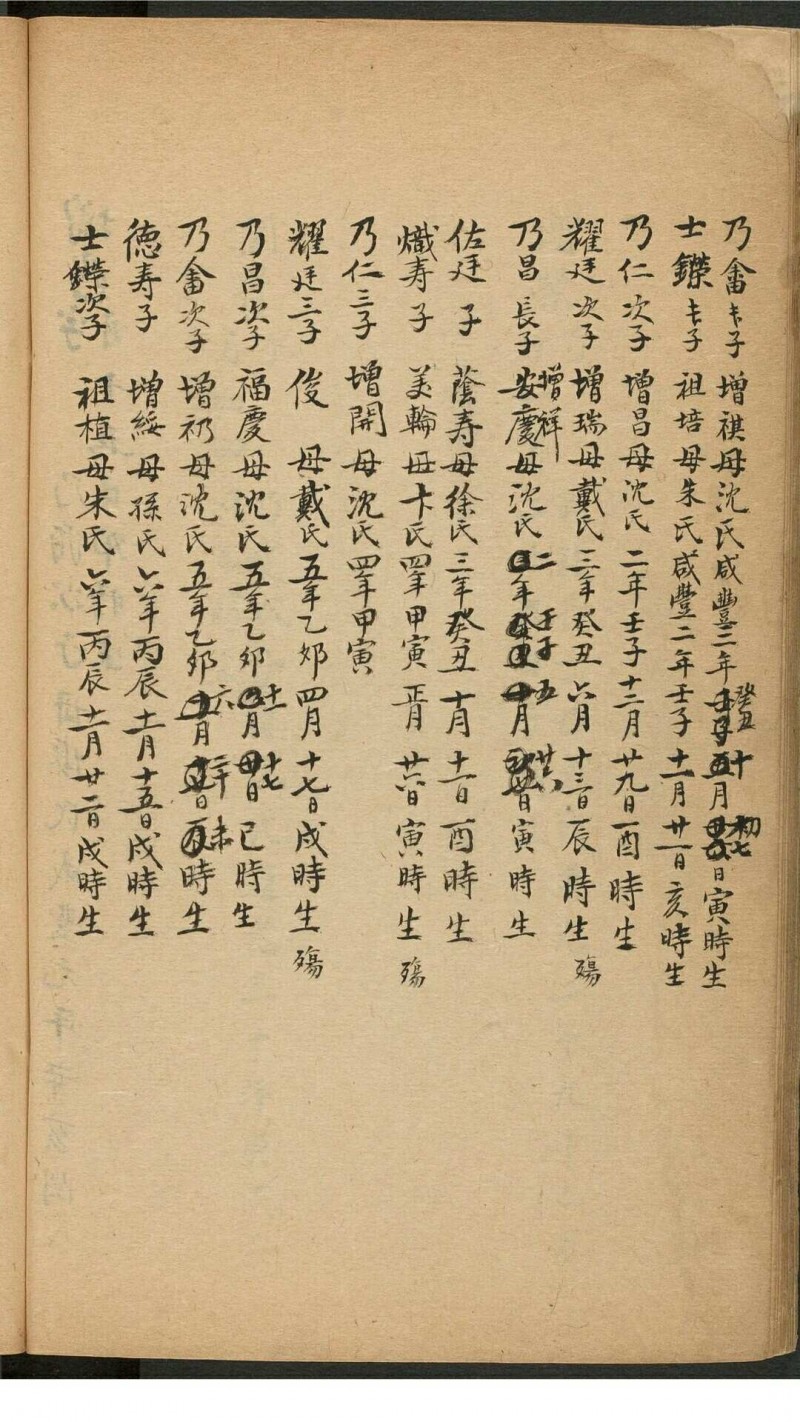 乃畬長子 增祺母沈氏咸豐二年癸丑十月初七日寅時生
士鑅長子 祖培母朱氏咸豐二年壬子十一月廿一日亥時生
乃仁次子 增昌母沈氏二年壬子十二月廿九日酉時生
耀廷次子 增瑞母戴氏三年癸丑六月十三日辰時生殤
乃昌長子 安慶增祥母沈氏二年壬子五月廿六日寅時生
佐廷子 蔭寿母徐氏三年癸丑十月十一日酉時生
熾寿子 美輪母卞氏四年甲寅正月廿六日寅時生殤
乃仁三子 增開母沈氏四年甲寅
耀廷三子 俊 母戴氏五年乙卯四月十七日戌時生殤
乃昌次子 福慶母沈氏五年乙卯十一月十七日巳時生
乃畬次子 增礽母沈氏五年乙卯六月三十日未時生
德寿子 增綏母孫氏六年丙辰十一月十五日戌時生
士鑅次子 祖植母朱氏六年丙辰十一月廿二日戌時生